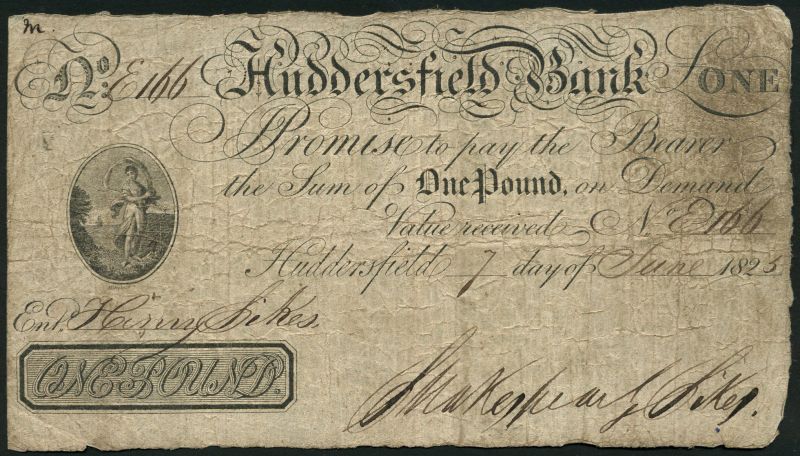 m.
No: E166 Huddersfield Bank £ONE
I Promise to pay the Bearer
the Sum of One Pound, on Demand
Value received No E166
Huddersfield 7 day of June 1825
Entd. Henry Sikes.
ONE POUND.
Shakespear G Sikes.